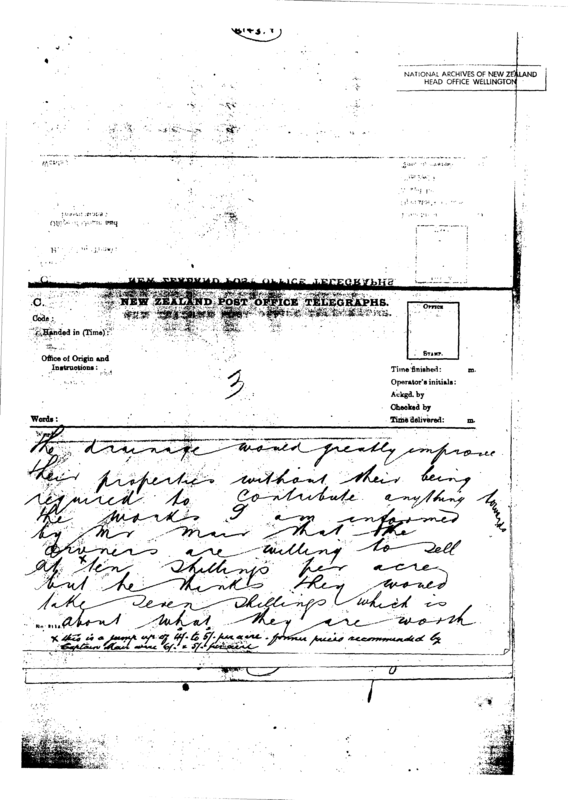 NATIONAL ARCHIVES OF NEW ZEALAND
HEAD OFFICE WELLINGTON
C. NEW ZEALAND POST OFFICE TELEGRAPHS.
Code :
Handed in (Time) :
Office of Origin and
Instructions :
OFFICE
STAMP.
3
Time finished: m.
Operator's initials:
Ackgd. by
Checked by
Words : Time delivered: m.
the drainage would greatly improve
their properties without their being
required to contribute anything towards
the works I am informed
by Mr Mair that the
owners are willing to sell
at x ten shillings per acre
but he thinks they would
take seven shillings which is
about what they are worth
x this is a jump up of 4/- to 5/- per acre - former prices recommended by
Captain Mair were 6/- & 5/- per acre